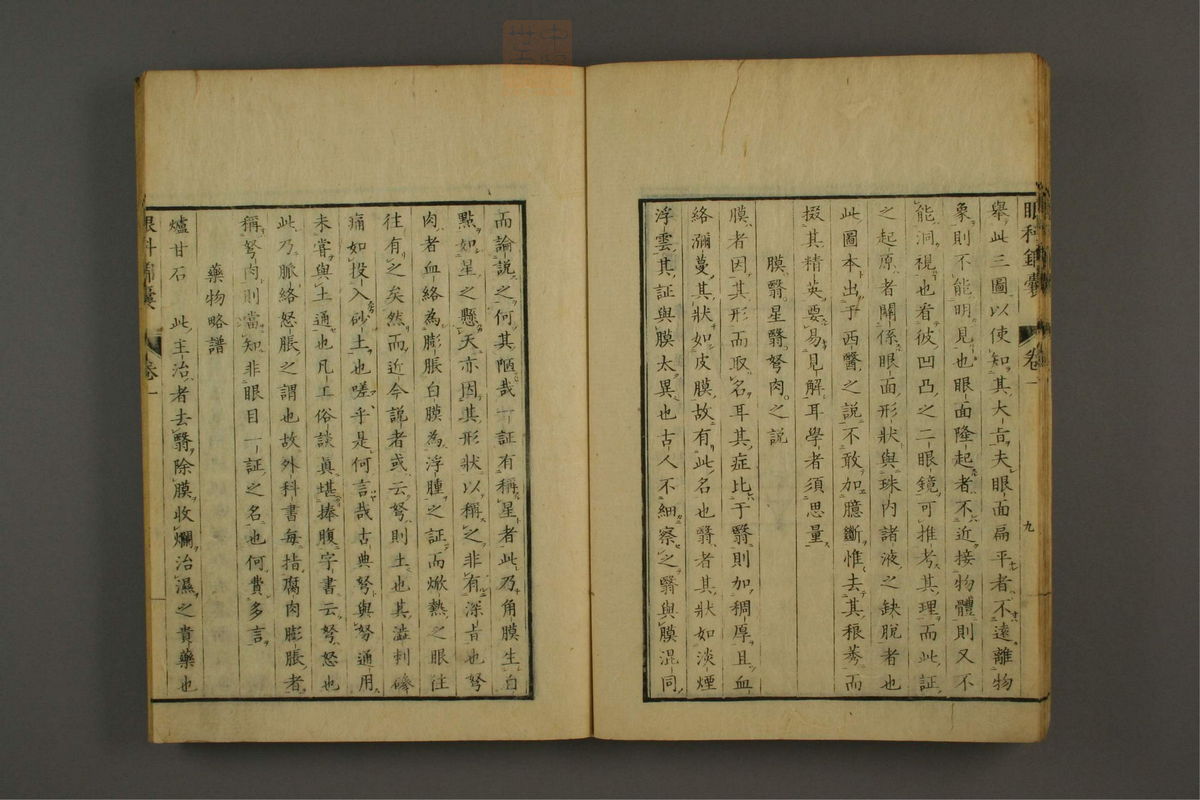 眼科錦囊 卷一 九
舉此三圖以使知其大旨夫眼面扁平者不遠離物
象則不能明見也眼面隆起者不近接物體則又不
能洞視也看彼凹凸之二眼鏡可推考其理而此証
之起原者關係眼面形狀與珠内諸液之缺脫者也
此圖本出于西醫之說不敢加臆斷惟去其稂莠而
掇其精英要易見解耳學者須思量
膜翳星翳弩肉之說
膜者因其形而取名耳其症比于翳則加稠厚且血
絡瀰蔓其狀如皮膜故有此名也翳者其狀如淡煙
浮雲其証與膜太異也古人不細察之翳與膜混同
而論說之何其陋哉 証有稱星者此乃角膜生白
點如星之懸天亦因其形狀以稱之非有深旨也弩
肉者血絡為膨脹白膜為浮腫之証而焮熱之眼往
往有之矣然而近今說者或云弩則土也其澁刺磣
痛如投入砂土也嗟乎是何言哉古典弩與努通用
未嘗與土通也凡工俗談眞堪捧腹字書云弩怒也
此乃脈絡怒脹之謂也故外科書每指腐肉膨脹者
稱弩肉則當知非眼目一証之名也何費多言
藥物略譜
爐甘石 此主治者去翳除膜收爛治濕之貴藥也
眼科錦囊 卷一